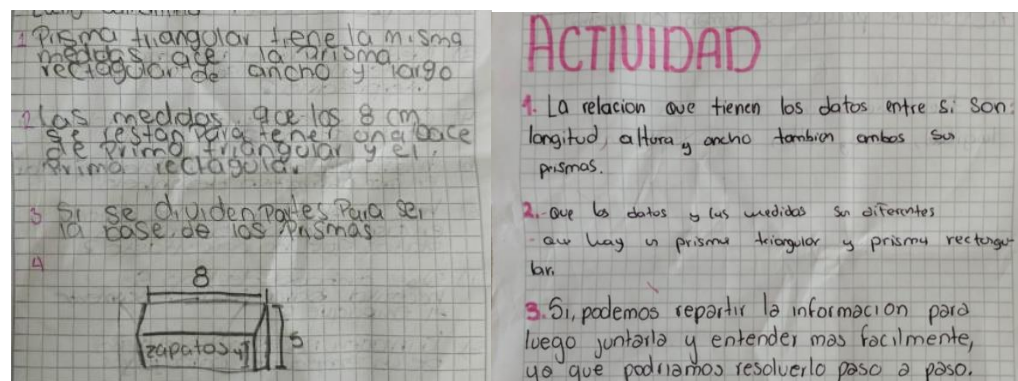 1 Prisma triangular tiene la misma
medidas qce la prisma
rectagular de ancho y largo
2 las medidas qce los 8 cm
se restan para tener una bace
de primo triangular y el
prima rectagular.
3 Si se dividen partes para ser
la base de los prismas
4
8
zapatos 4
5
ACTIVIDAD
1. La relacion que tienen los datos entre si son:
longitud, altura y ancho tambien ambos su
prismas.
2.- Que los datos y las medidas sn diferentes
- que hay un prisma triangular y prisma rectangu-
lar.
3. Si, podemos repartir la informacion para
luego juntarla y entender mas facilmente,
ya que podriamos resolverlo paso a paso.